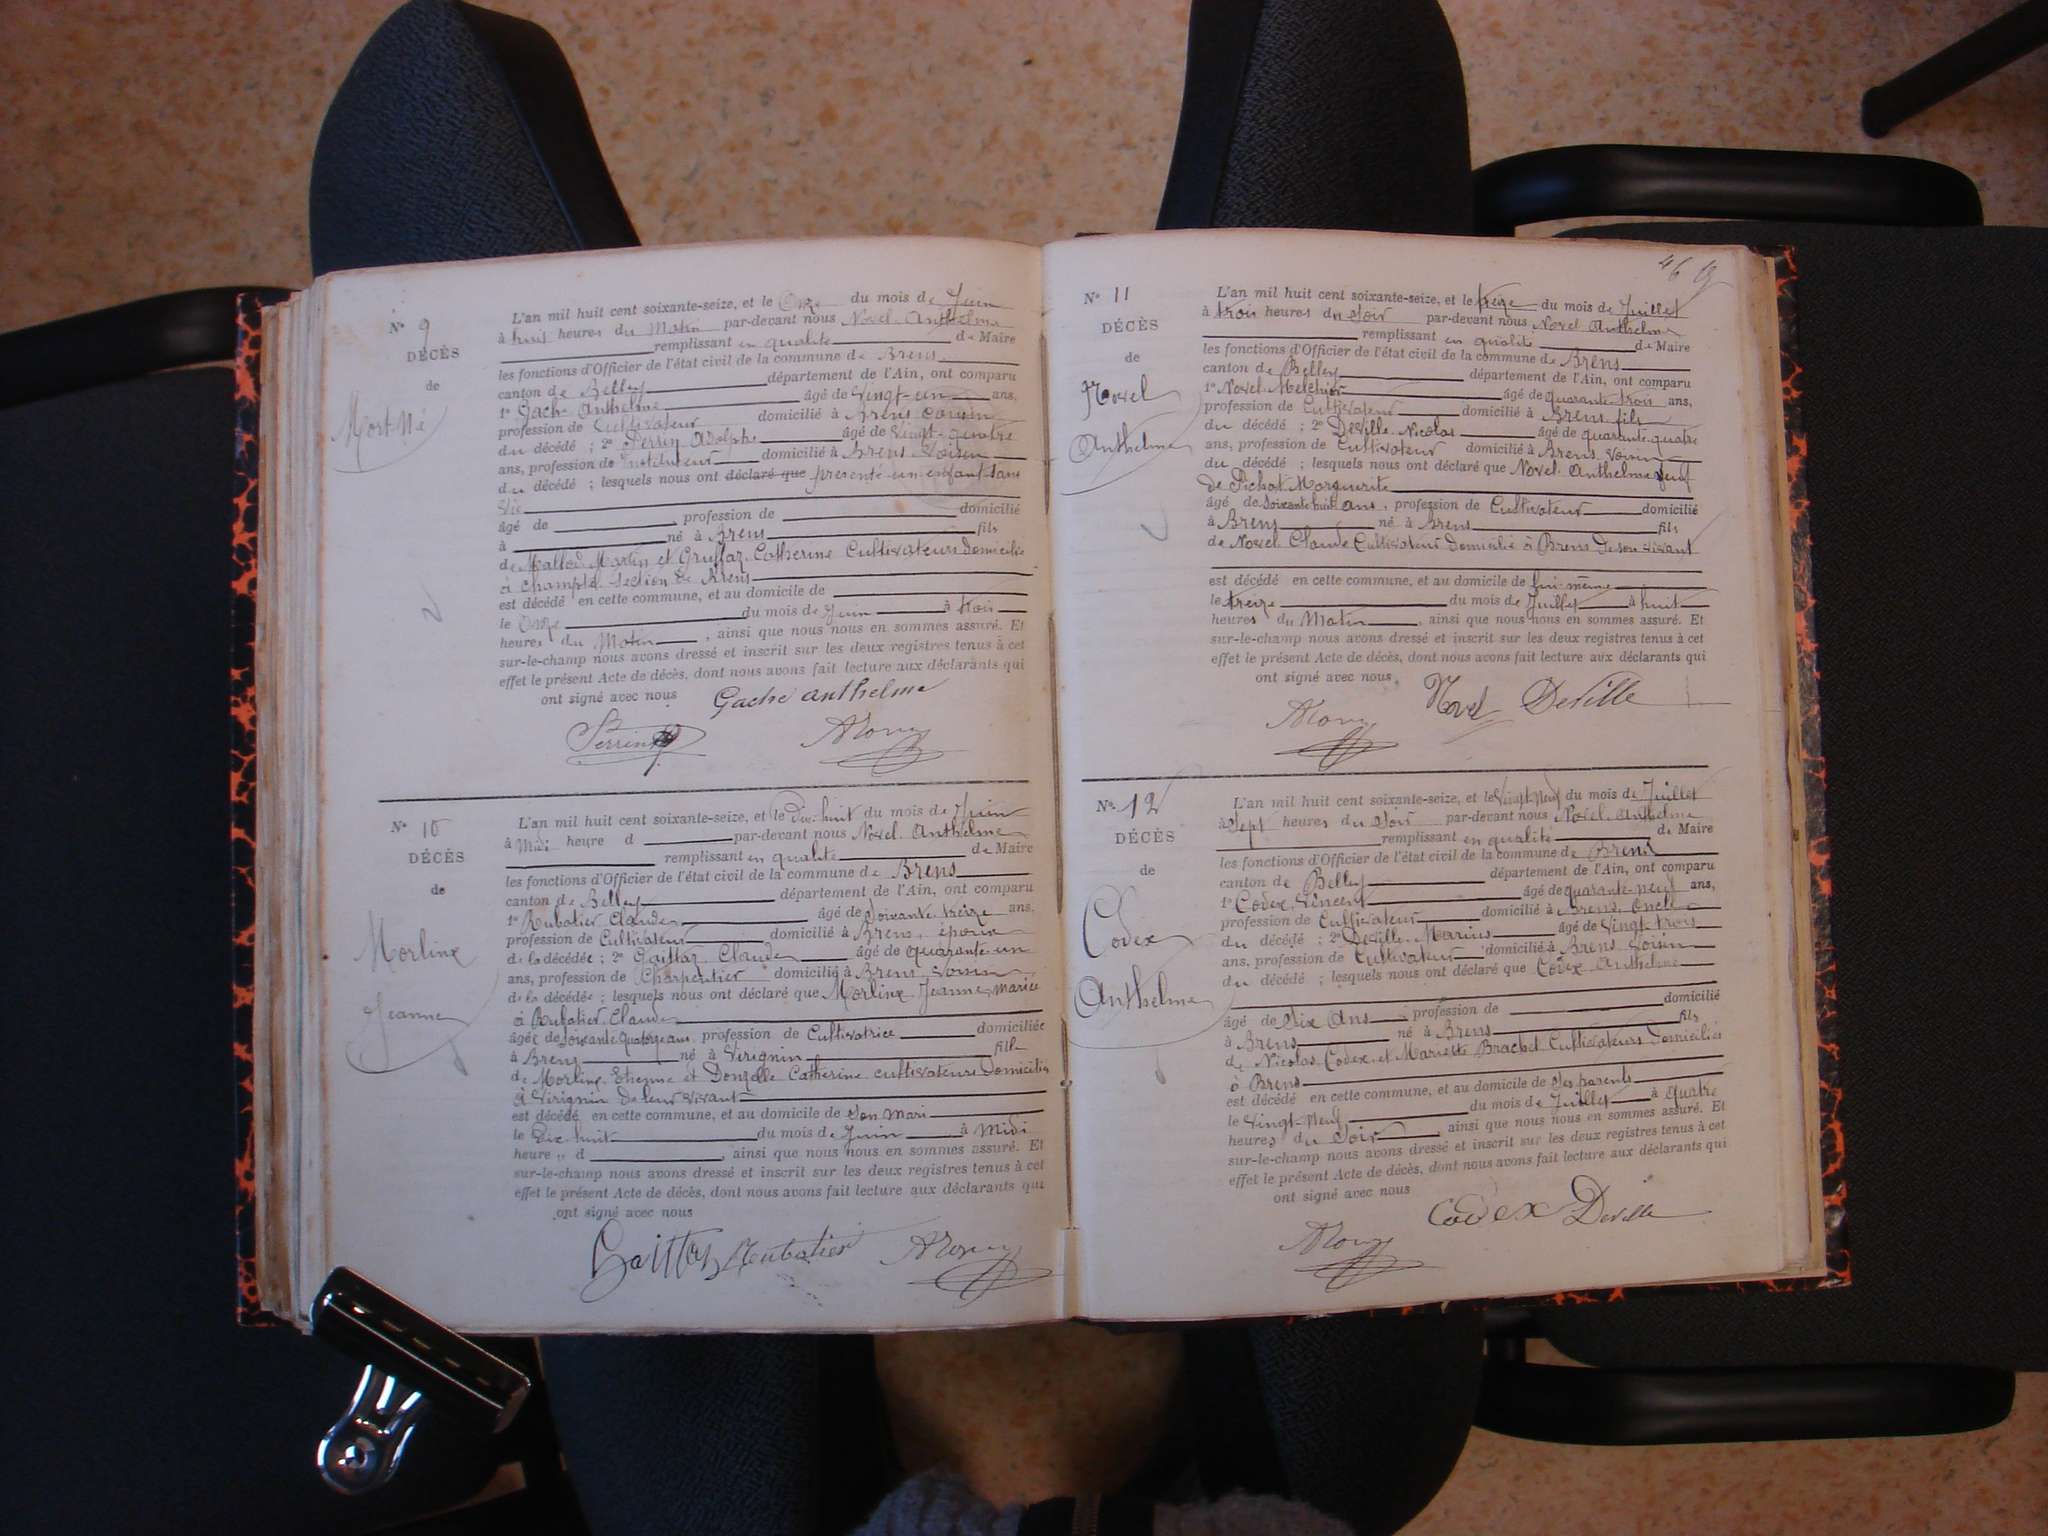 N° 9
DÉCÈS
de
Mort Né
L'an mil huit cent soixante-seize, et le Onze du mois de Juin
à huit heures du Matin par-devant nous Novel Anthelme
remplissant en qualité de Maire
les fonctions d'Officier de l'état civil de la commune de Brens
canton de Belley département de l'Ain, ont comparu
1° Gache Anthelme âgé de vingt-un ans,
profession de Cultivateur domicilié à Brens cousin
du décédé ; 2° Perrin Adolphe âgé de vingt-quatre
ans, profession de Instituteur domicilié à Brens Voisin
du décédé ; lesquels nous ont déclaré que présenté un enfant sans
vie
âgé de profession de domicilié
à né à Brens fils
de Mallod Martin et Gruffaz Catherine Cultivateurs domiciliés
à Champtel section de Brens
est décédé en cette commune, et au domicile de
le Onze du mois de Juin à trois
heures du Matin, ainsi que nous nous en sommes assuré. Et
sur-le-champ nous avons dressé et inscrit sur les deux registres tenus à cet
effet le présent Acte de décès, dont nous avons fait lecture aux déclarants qui
ont signé avec nous Gache anthelme
Perrin ANovel
N° 10
DÉCÈS
de
Morline
Jeanne
L'an mil huit cent soixante-seize, et le Dix-huit du mois de Juin
à Midi heure d par-devant nous Novel Anthelme
remplissant en qualité de Maire
les fonctions d'Officier de l'état civil de la commune de Brens
canton de Belley département de l'Ain, ont comparu
1° Rubatier Claude âgé de Soixante treize ans,
profession de Cultivateur domicilié à Brens, époux
de la décédée ; 2° Gaittaz Claude âgé de quarante-un
ans, profession de Charpentier domicilié à Brens Voisin
de la décédée ; lesquels nous ont déclaré que Morline Jeanne mariée
à Rubatier Claude
âgée de soixante quatorze ans profession de Cultivatrice domiciliée
à Brens né à Virignin fille
de Morline Etienne et Donzelle Catherine cultivateurs Domiciliés
à Virignin de leur vivant
est décédé en cette commune, et au domicile de son mari
le Dix huit du mois de Juin à Midi
heure " d , ainsi que nous nous en sommes assuré. Et
sur-le-champ nous avons dressé et inscrit sur les deux registres tenus à cet
effet le présent Acte de décès, dont nous avons fait lecture aux déclarants qui
ont signé avec nous
Gaittaz Rubatier ANovel
46
N° 11
DÉCÈS
de
Novel
Anthelme
L'an mil huit cent soixante-seize, et le treize du mois de Juillet
à trois heures du Soir par-devant nous Novel Anthelme
remplissant en qualité de Maire
les fonctions d'Officier de l'état civil de la commune de Brens
canton de Belley département de l'Ain, ont comparu
1° Novel Melchior âgé de quarante-trois ans,
profession de Cultivateur domicilié à Brens fils
du décédé ; 2° Deville Nicolas âgé de quarante-quatre
ans, profession de Cultivateur domicilié à Brens Voisin
du décédé ; lesquels nous ont déclaré que Novel Anthelme veuf
de Pichat Marguerite
âgé de soixante huit ans, profession de Cultivateur domicilié
à Brens né à Brens fils
de Novel Claude Cultivateur Domicilié à Brens De son vivant
est décédé en cette commune, et au domicile de lui-même
le treize du mois de Juillet à huit
heures du Matin, ainsi que nous nous en sommes assuré. Et
sur-le-champ nous avons dressé et inscrit sur les deux registres tenus à cet
effet le présent Acte de décès, dont nous avons fait lecture aux déclarants qui
ont signé avec nous. Novel Deville
ANovel
N° 12
DÉCÈS
de
Codex
Anthelme
L'an mil huit cent soixante-seize, et le Vingt-neuf du mois de Juillet
à Sept heures du Soir par-devant nous Novel Anthelme
remplissant en qualité de Maire
les fonctions d'Officier de l'état civil de la commune de Brens
canton de Belley département de l'Ain, ont comparu
1° Codex Vincent âgé de quarante-neuf ans,
profession de Cultivateur domicilié à Brens, Oncle
du décédé ; 2° Deville Marius âgé de Vingt-trois
ans, profession de Cultivateur domicilié à Brens Voisin
du décédé ; lesquels nous ont déclaré que Codex Anthelme
âgé de Dix Ans profession de domicilié
à Brens né à Brens fils
de Nicolas Codex et Mariette Brachet Cultivateurs Domiciliés
à Brens
est décédé en cette commune, et au domicile de Ses parents
le Vingt-Neuf du mois de Juillet à quatre
heures du Soir, ainsi que nous nous en sommes assuré. Et
sur-le-champ nous avons dressé et inscrit sur les deux registres tenus à cet
effet le présent Acte de décès, dont nous avons fait lecture aux déclarants qui
ont signé avec nous Codex Deville
ANovel